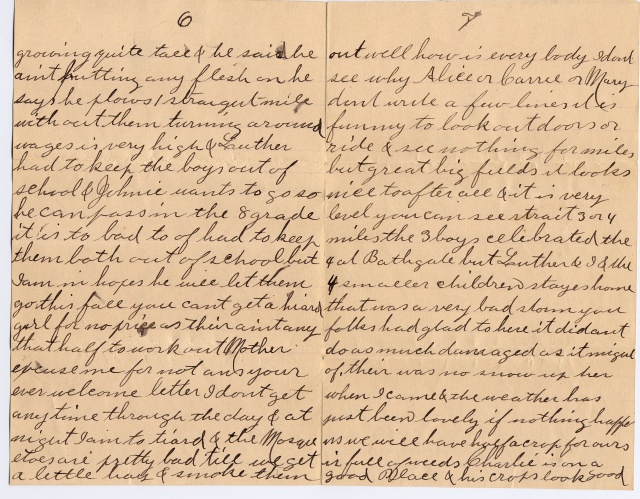 6
growing quite tall & he said he
aint putting any flesh on he
says he plows 1 straigut mile
with out them turning around
wages is very high & Luther
had to keep the boys out of
school & Johnie wants to go so
he can pass in the 8 grade
it is to bad to of had to keep
them both out of school but
I am in hopes he will let them
go this fall you cant get a hiard
girl for no price as their aint any
that half to work out Mother
excuse me for not ansyour
ever welcome letter I dont get
any time through the day & at
night I am to tiard & the Mosque
etoes are pretty bad till we get
a little hay & smoke them
7
out well how is every body I dont
see why Alice or Carrie or Mary
dont write a few lines it is
funny to look out doors or
ride & see nothing for miles
but great big fields it looks
nice to after all & it is very
level you can see strait 3 or 4
miles the 3 boys celebrated the
4 at Bathgate but Luther & I & the
4 smaller children stayes home
that was a very bad storm you
folks had glad to here it did ant
do as much damaged as it migut
of their was no snow up her
when I came & the weather has
just been lovely if nothing happe
ns we will have half a crop for ours
is full of weeds Charlie is on a
good Place & his crops look good